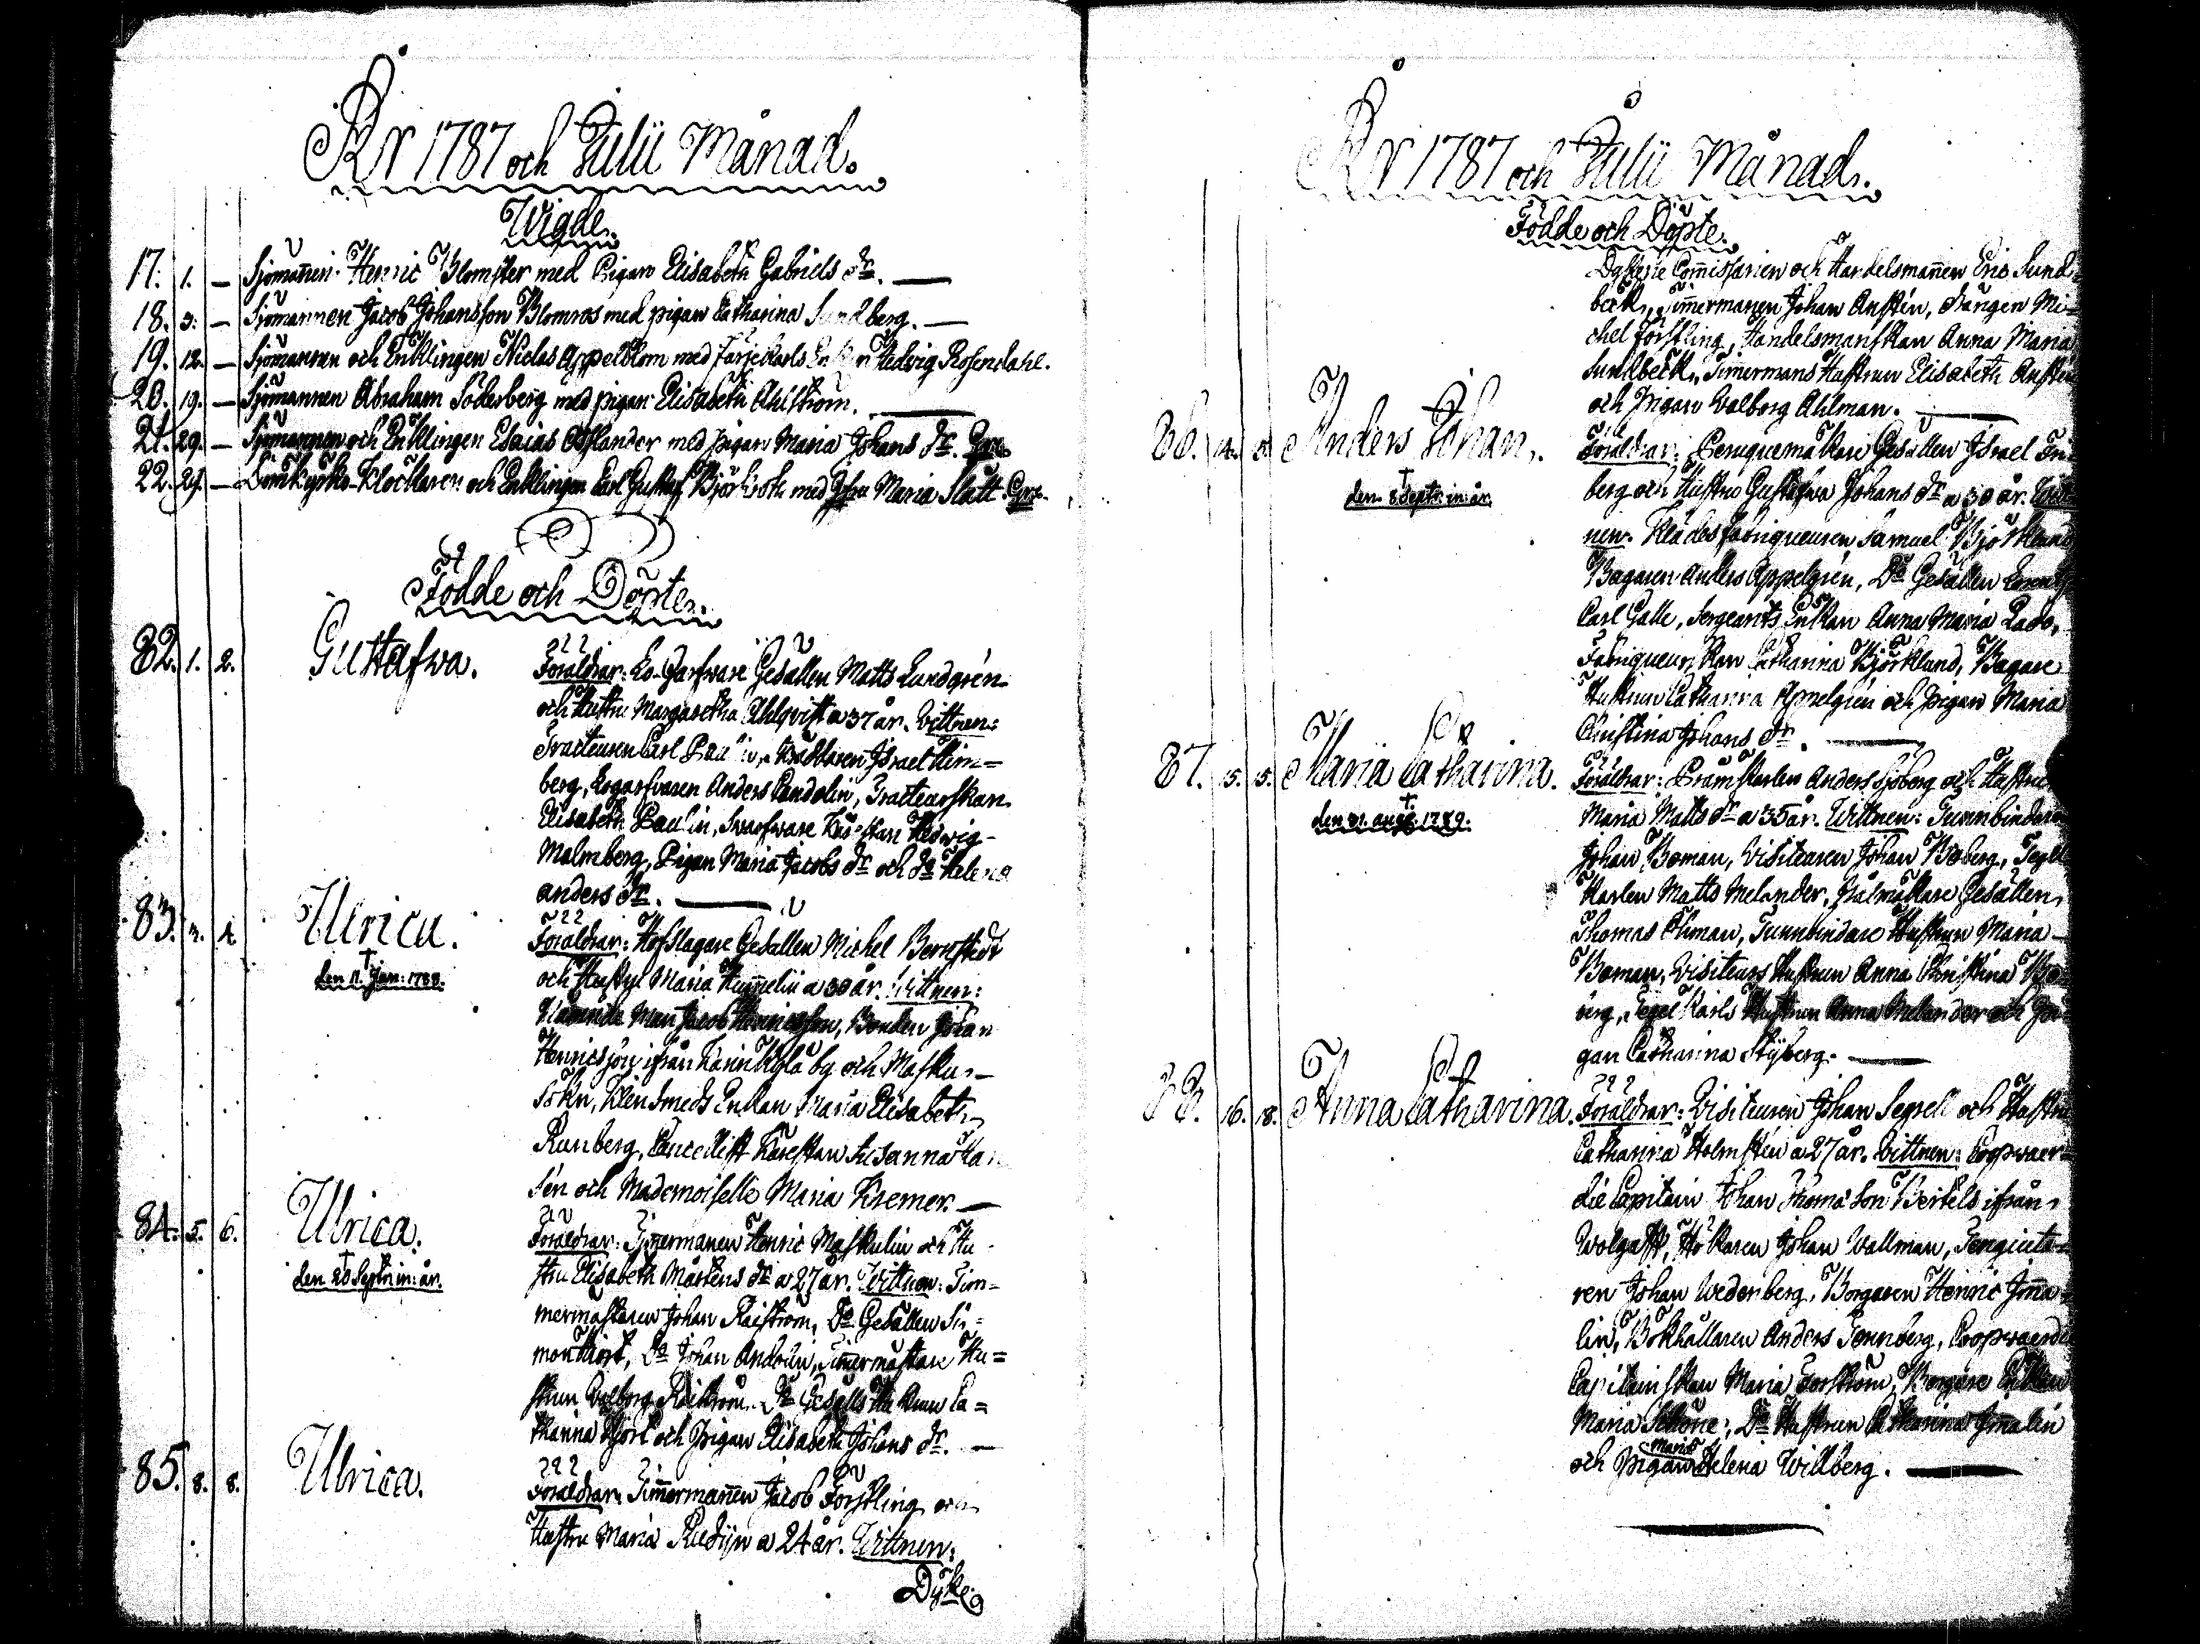 År 1787 och Julii Månad.
Wigde.
17. 1. — Sjömannen Henric Blomster med Pigan Elisabeth Gabriels dr. —
18. 3. — Sjömannen Jacob Johansson Blomros med pigan Catharina Sundberg. —
19. 12. — Sjömannen och Enklingen Niclas Appelblom med Färjekarls Enkan Hedvig Rosendahl.
20. 19. — Sjömannen Abraham Söderberg med pigan Elisabeth Ahlström. —
21. 29. — Sjömannen och Enklingen Esaias Menlander med pigan Maria Johans dr.
22. 29. — Domkyrko-Klockaren och Enklingen Carl Gustaf Björkroth med Jfru Maria Slätt
Födde och Döpte.
82. 1. 2. Gustafwa. Föräldrar: Ho-Garfware Gesällen Matts Lundgrén
och Hustru Margaretha Ahlqvist a 37 år. Vittnen:
Tracteuren Carl Paulin, Kradsaren Israel Kim=
berg, Logarfvaren Anders Candolin, Tracteurskan
Elisabeth Paulin, Swarfware Hedwig
Malmberg, Pigan Maria Jacobs dr och do Helena
anders dr. —
83. 3. 4. Ulrica. Föräldrar: Hofslagare Gesällen Michel Bernstedt
† den 11. Jan: 1788. och Hustru Maria Hummelin a 30 år. Vittnen:
Man Jacob Henricsson, Bonden Johan
Henricsson ifrån Karinkylä by och Masku
Sokn, Klensmeds Enkan Maria Elisabeth
Runberg, Cancellist Käreskan Susanna
sén och Mademoiselle Maria Kremer. —
84. 5. 6. Ulrica. Föräldrar: Timermannen Henric Maskulin och Hu-
† den 20 Septr. in: år. stru Elisabeth Mårtens dr a 27 år. Vittnen: Tim=
mermästaren Johan Raiström, Do Gesällen Si=
mon Hiort, Do Johan Andelin, Timermästare Hu=
strun Walborg Raiström, Do Gesälls Hustrun Ca=
tharina Hjort och Pigan Elisabeth Johans dr. —
85. 8. 8. Ulrica. Föräldrar: Timmermannen Jacob Förstling och
Hustru Maria Rudijn a 24 år. Wittnen:
Dyke
År 1787 och Julii Månad.
Födde och Döpte.
Dykerie Commissarien och Handelsmannen Eric Sund=
beck, Timmermannen Johan Austén, Drängen Mi=
chel Förstling, Handelsmanskan Anna Maria
Sundbeck, Timermans Hustrun Elisabeth Austén
och Pigan Walborg Ahlman. —
86. Anders Johan. Föräldrar: Peruquemakare Gesällen Israel
† den 8 Septr: in: år. berg och Hustru Gustafwa Johans dr a 30 år. Witt
nen: Klädesfabriqueuren Samuel Björklund
Bagaren Anders Appelgrén, Do Gesällen
Carl Galle, Sergeants Enkan Anna Maria
Fabriqueurskan Catharina Björklund, Bagare
Hustrun Catharina Appelgrén och pigan Maria
Christina Johans dr. —
87. 5. 5. Maria Catharina. Föräldrar: Pråmkarlen Anders Sjöberg och Hustru
† den 31. aug: 1789. Maria Matts dr a 35 år. Wittnen: Tunnbindaren
Johan Boman, Visiteuren Johan Boberg, Tegel
Karlen Matts Melander, Gesällen
Thomas Öhman, Tunnbindare Hustrun Maria
Boman, Visiteurs Hustrun Anna Christina Bo
berg, Tegel Karls Hustrun Anna Melander och Pi
gan Catharina Styberg. —
88. 16. 18. Anna Catharina. Föräldrar: Visiteuren Johan Segrell och Hustru
Catharina Holmstén a 27 år. Vittnen: Coopvaer=
die Capitain Johan Thomason Bertels ifrån
Wolgast, Hökaren Johan Wallman,
ren Johan Wedenberg, Borgaren Henric Jma=
lin, Bokhållaren Anders Tennberg, Coopvaerdie
Capitainskan Maria Forsström, Borgare Enkan
Maria Schöne, Do Hustrun Catharina Jmalin
och pigan Maria Helena Willberg. —